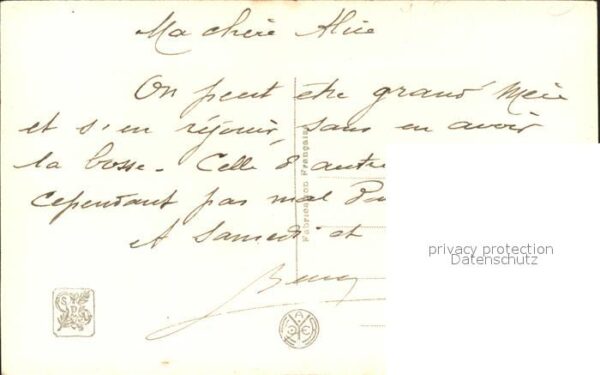 Ma chère Alice
On peut être grand' Mère
et s'en réjouir, sans en avoir
la bosse. Celle d'autre
cependant pas mal
et samedi et
Fabrication Française
privacy protection
Datenschutz